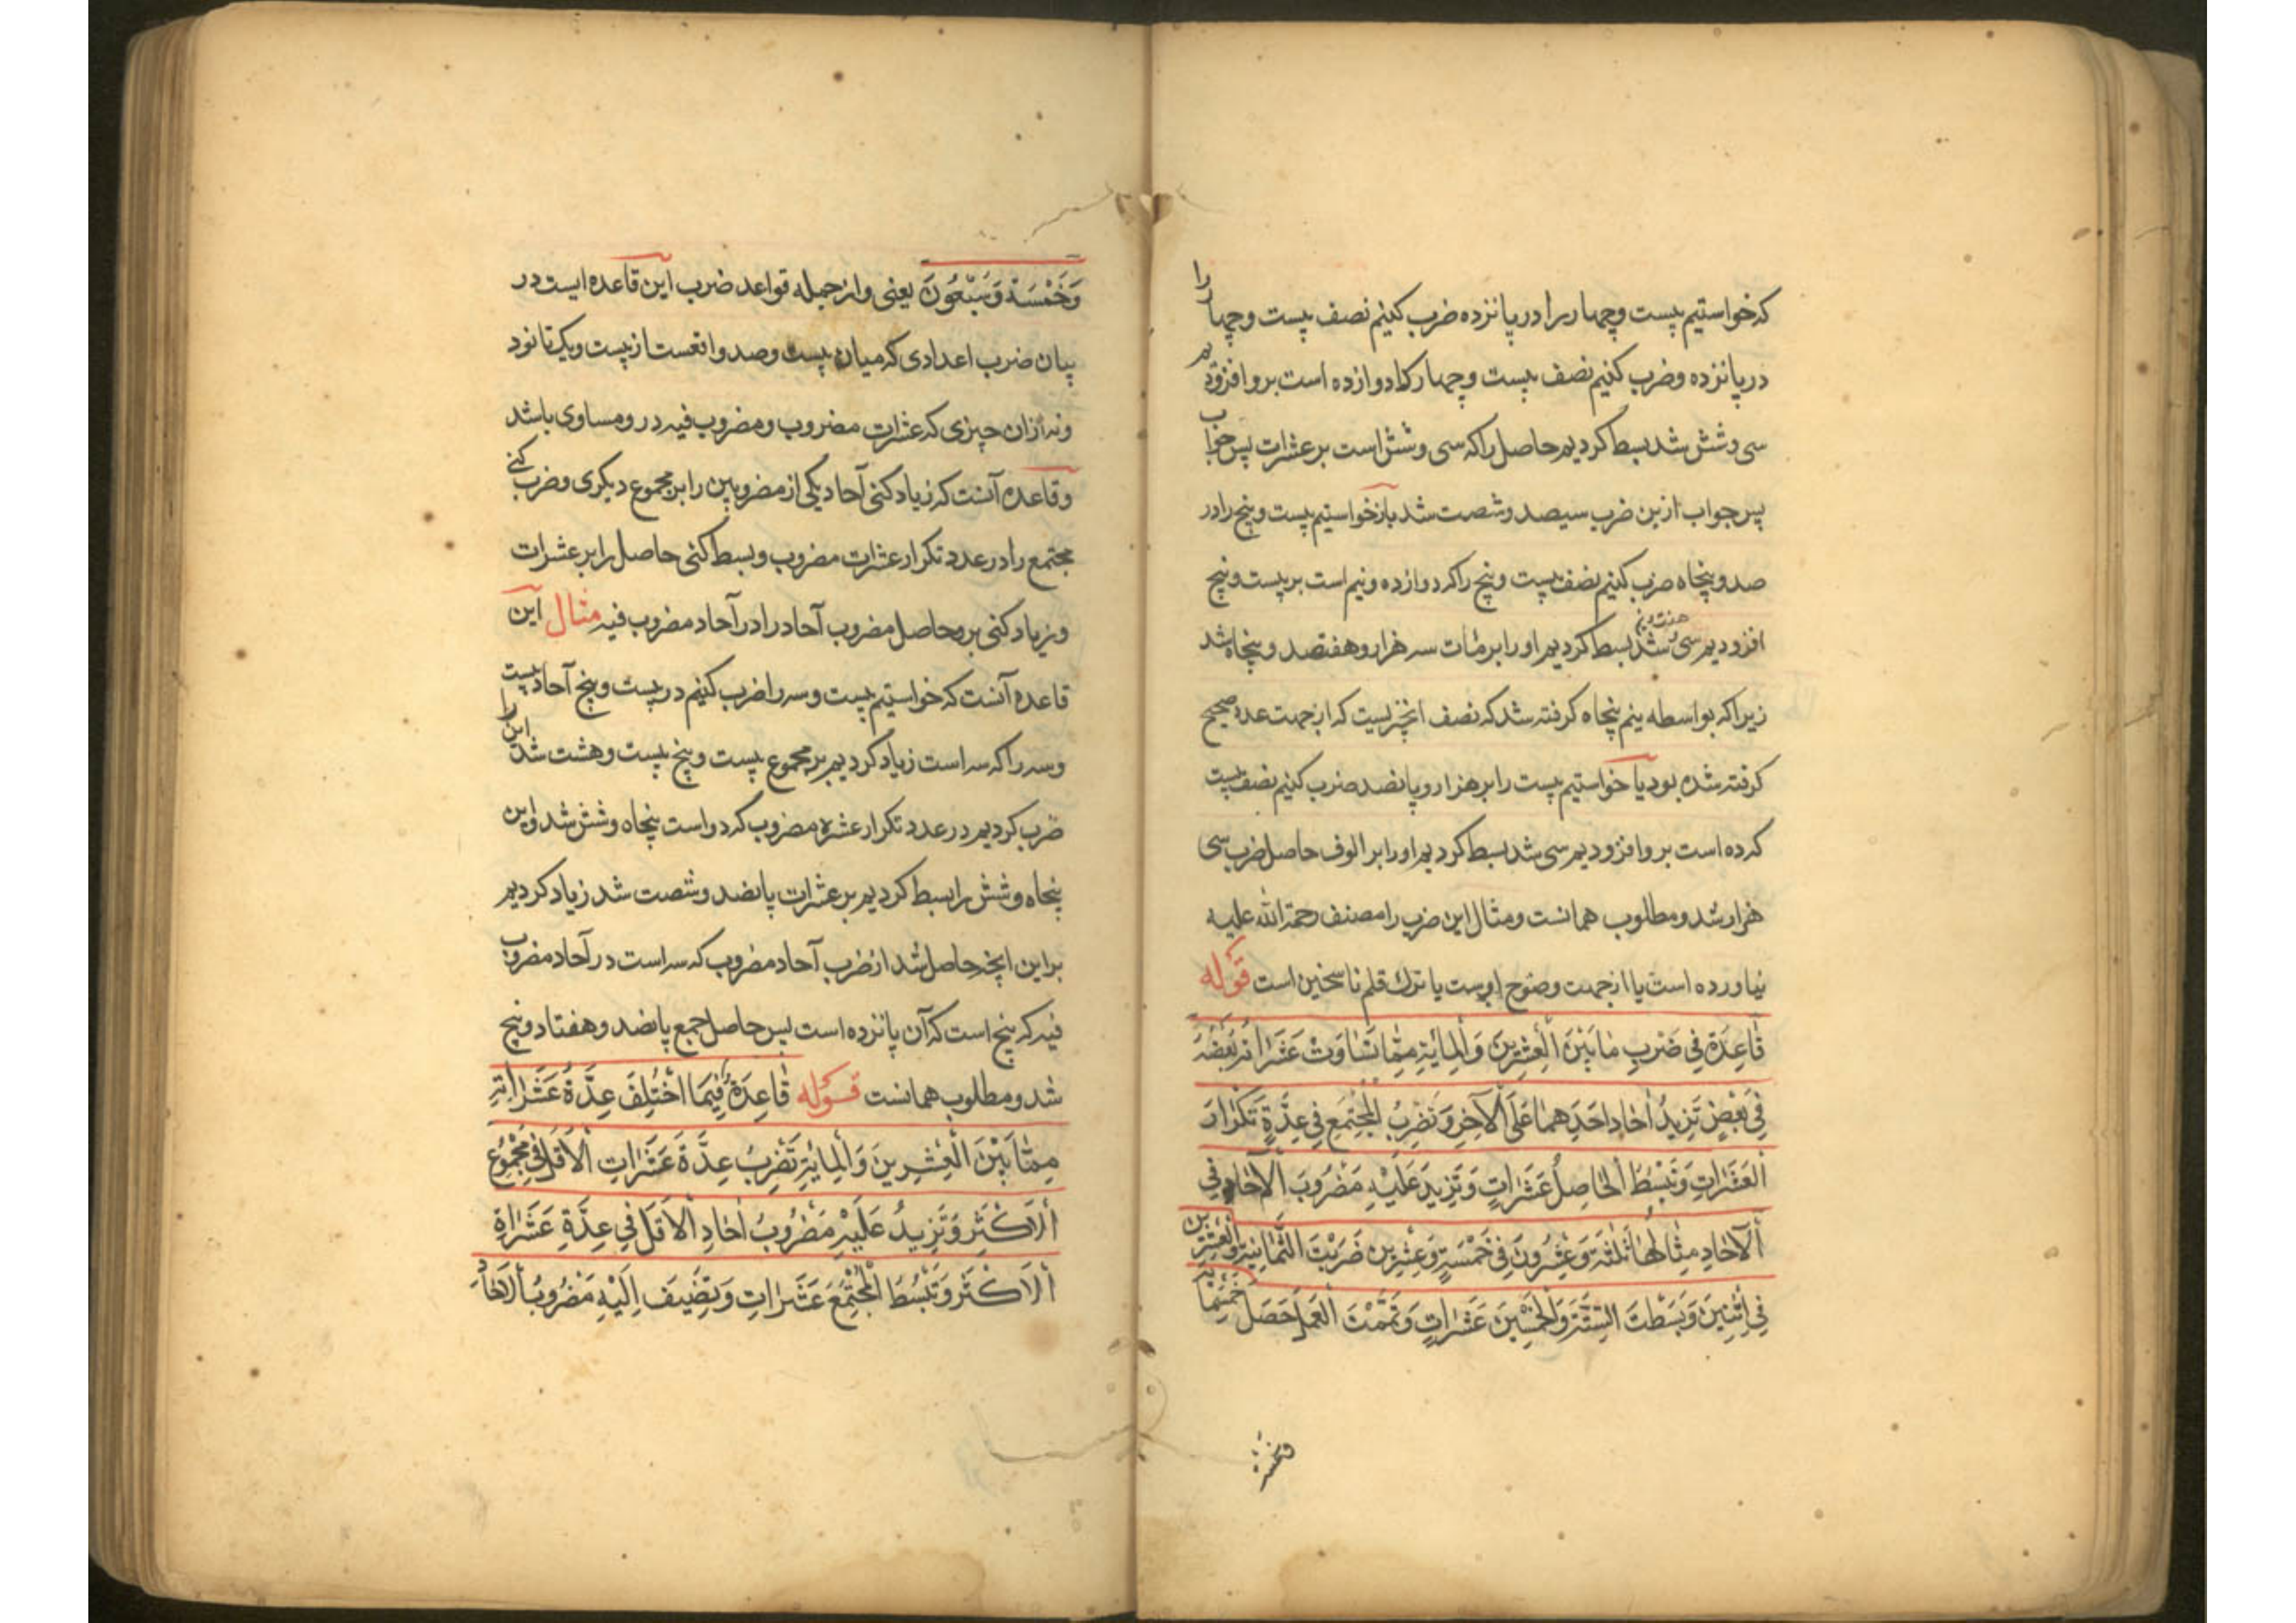 که خواستیم بیست وچهار را در پانزده ضرب کنیم نصف بیست وچهار را
در پانزده وضرب کنیم نصف بیست وچهار که دوازده است برو افزودیم
سی وشش شد بسط کردیم حاصل را که سی وشش است بر عشرات پس جواب
پس جواب ازین ضرب سیصد وشصت شد باز خواستیم بیست وپنج را در
صد وپنجاه ضرب کنیم نصف بیست وپنج را که دوازده ونیم است بر بیست وپنج
افزودیم سی هفت ونیم شد بسط کردیم او را بر مآت سه هزار وهفتصد وپنجاه شد
زیرا که بواسطه نیم پنجاه کرفته شد که نصف انچیزیست که از جهت عدد صحیح
کرفته شده بود یا خواستیم بیست را بر هزار وپانصد ضرب کنیم نصف بیست
که ده است برو افزودیم سی شد بسط کردیم او را بر الوف حاصل ضرب سی
هزار شد ومطلوب همانست ومثال این ضرب را مصنف رحمة الله علیه
نیاورده است یا از جهت وضوح اوست یا ترک قلم ناسخین است قوله
قَاعِدَة فِی ضَرْبِ مَا بَیْنَ الْعِشْرِینَ وَالْمِایَةِ مِمَّا تَسَاوَتْ عَشَرَاتُه بَعْضُهُ
فِی بَعْضٍ تَزِیدُ اٰحَادِ اَحَدِهِمَا عَلَی الْآخِرِ وَتَضْرِبُ الْمُجْتَمِعَ فِی عِدَّةِ تَکْرَارِ
الْعَشَرَاتِ وَتَبْسُطُ الْحَاصِلَ عَشَرَاتٍ وَتَزِیدَ عَلَیْهِ مَضْرُوبَ الْاٰحَادِ فِی
الْآحَادِ مِثَالُهَا ثَلٰثَة وَعِشْرُونَ فِی خَمْسَةٍ وَعِشْرِین ضَرَبْتَ الثَّمَانِیَةَ وَالْعِشْرِینَ
فِی اِثْنَیْنَ وَبَسَطْتَ السِّتَّةَ وَالْخَمْسِینَ عَشَرَاتٍ وَتَمَّمْتَ الْعَمَلَ حَصَلَ خَمْسُمِائَةٍ
وخمسة
وَخَمْسَة وَسَبْعُونَ یعنی واز جمله قواعد ضرب این قاعده ایست در
بیان ضرب اعدادی که میان بیست وصد واقعست از بیست ویک تا نود
ونه از ان چیزی که عشرات مضروب ومضروب فیه در ومساوی باشد
وقاعده آنست که زیاد کنی آحاد یکی از مضروبین را بر مجموع دیکری وضرب کنی
مجتمع را در عدد تکرار عشرات مضروب وبسط کنی حاصل را بر عشرات
وزیاد کنی برو حاصل مضروب آحاد را در آحاد مضروب فیه مثال این
قاعده آنست که خواستیم بیست وسه را ضرب کنیم در بیست وپنج آحاد بیست
وسه را که سه است زیاد کردیم بر مجموع بیست وپنج بیست وهشت شد این را
ضرب کردیم در عدد تکرار عشره مضروب که دو است پنجاه وشش شد واین
پنجاه وشش را بسط کردیم بر عشرات پانصد وشصت شد زیاد کردیم
بر این انچه حاصل شد از ضرب آحاد مضروب که سه است در آحاد مضروب
فیه که پنج است که آن پانزده است پس حاصل جمع پانصد وهفتاد وپنج
شد ومطلوب همانست قوله قَاعِدَةٌ فِیمَا اخْتُلِفَ عِدَّةُ عَشَرَاتِهِ
مِمَّا بَیْنَ الْعِشْرِینَ وَالْمِایَةِ تَضْرِبُ عِدَّةَ عَشَرَاتِ الْاَقَلِّ فِی مَجْمُوعِ
اَلْاَکْثَرِ وَتَزِیدُ عَلَیْهِ مَضْرُوبُ اٰحَادِ الْاَقَلِّ فِی عِدَّةِ عَشَرَاةِ
اَلْاَکْثَرِ وَتَبْسُطَ الْمُجْتَمِعَ عَشَرَاتٍ وَتُضِیفَ اِلَیْهِ مَضْرُوبُ الْاٰحَادِ